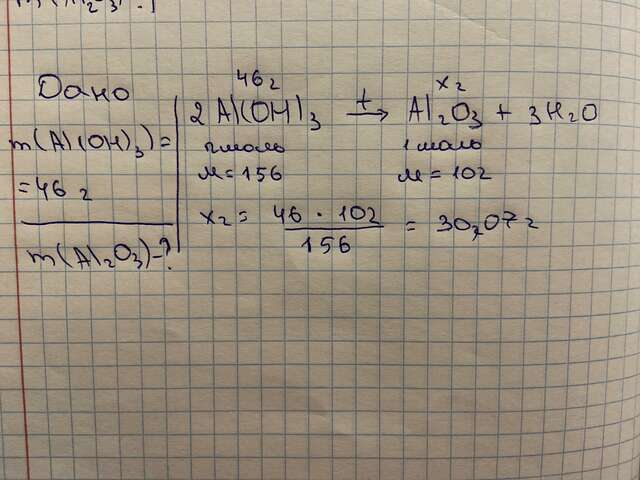 Дано
m(Al(OH)3)=
=46г
m(Al2O3)-?
46г xг
2Al(OH)3 t→ Al2O3 + 3H2O
2моль 1моль
M=156 M=102
xг = 46·102/156 = 30,07г